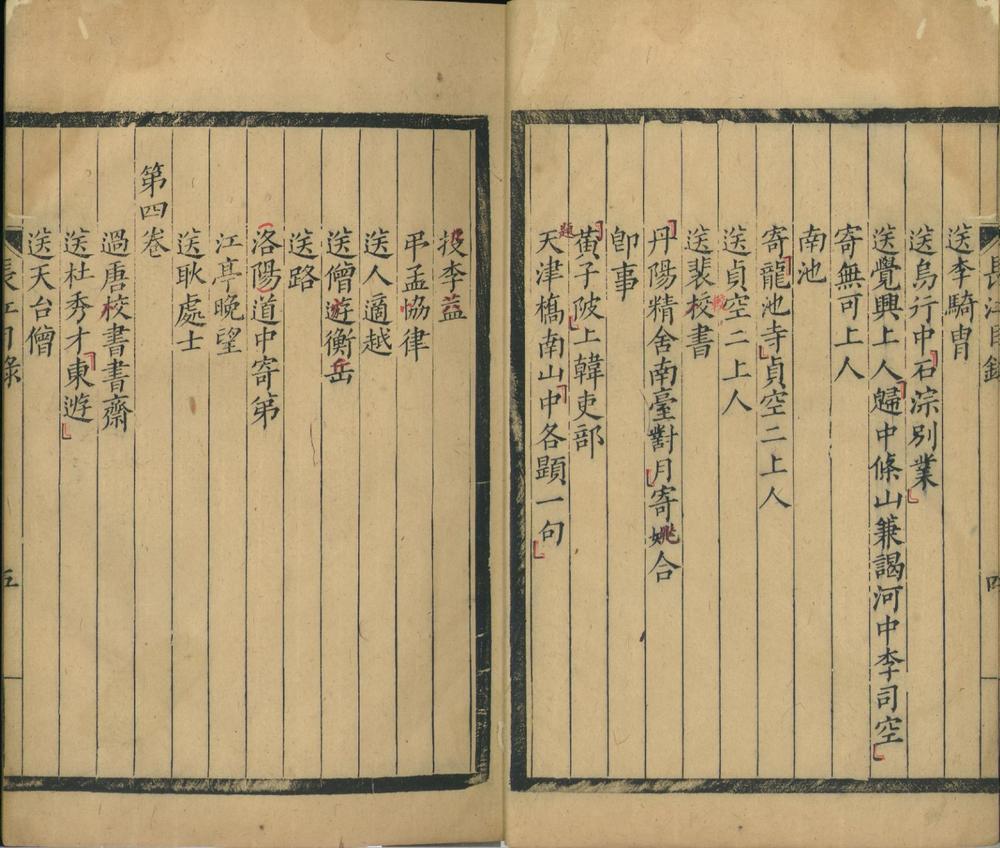 長江目錄
四
送李騎曹
送烏行中石淙別業
送覺興上人歸中條山兼謁河中李司空
寄無可上人
南池
寄龍池寺貞空二上人
送貞空二上人
送裴校書
丹陽精舍南臺對月寄姚合
即事
黃子陂上韓吏部
天津橋南山中各題一句
投李益
弔孟協律
送人適越
送僧遊衡岳
送路
洛陽道中寄弟
江亭晚望
送耿處士
第四卷
過唐校書書齋
送杜秀才東遊
送天台僧
長江目錄
五